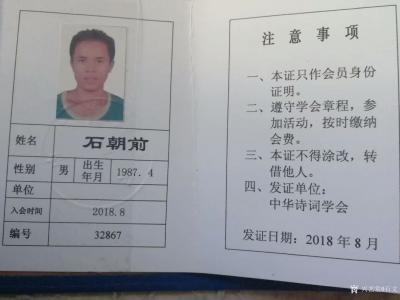 姓名 石朝前
性别 男 出生年月 1987.4
单位
入会时间 2018.8
编号 32867
注意事项
一、本证只作会员身份
证明。
二、遵守学会章程，参
加活动，按时缴纳
会费。
三、本证不得涂改，转
借他人。
四、发证单位：
中华诗词学会
发证日期：2018年8月